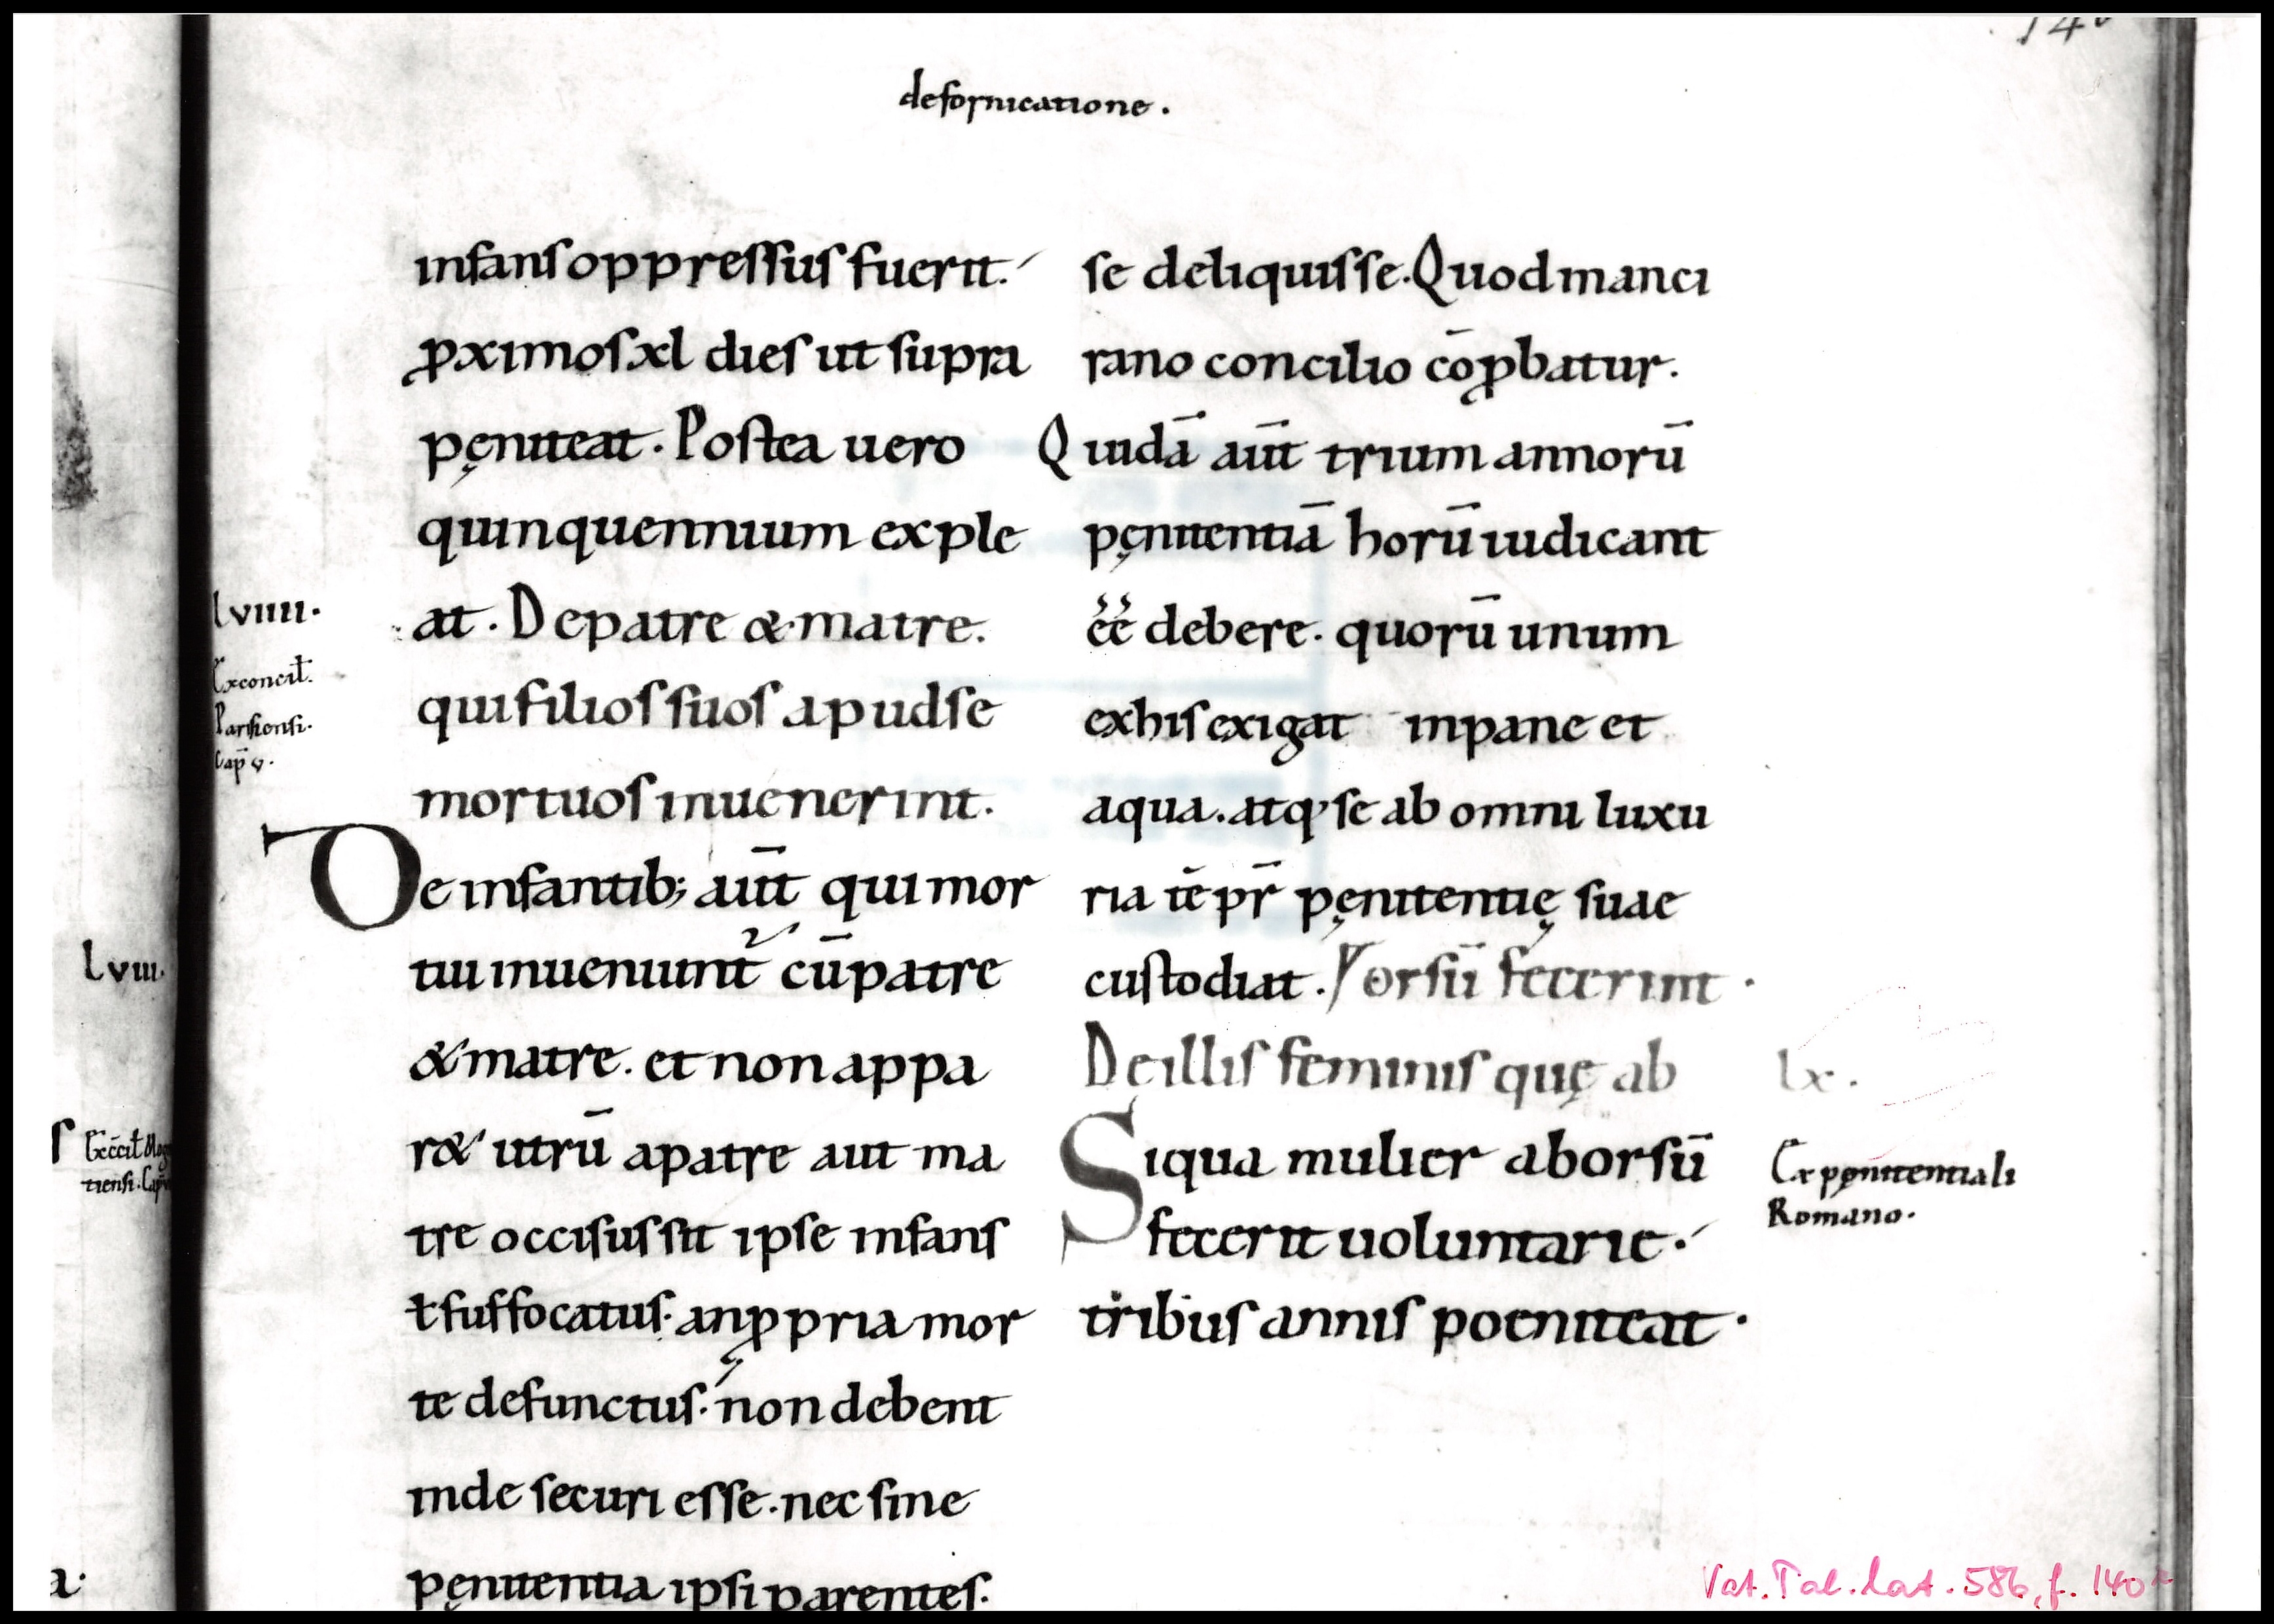 defornicatione.
infans oppressus fuerit.
ꝓximos xl dies ut supra
pęniteat. Postea uero
quinquennium exple
at. De patre & matre.
qui filios suos apud se
mortuos inuenerint.
De infantib; aūt qui mor
tui inueniunt᷑ cū patre
& matre. et non appa
r& utrū a patre aut ma
tre occisus sit ipse infans
ł suffocatus. an ꝓpria mor
te defunctus. non debent
inde securi esse. nec sine
pęnitentia ipsi parentes.
lviiii.
Ex concil̄.
Parisiensi.
Cap̄ v.
lviii.
se deliquisse. Quod manci
rano concilio cōꝓbatur.
Quidā aūt trium annorū
pęnitentiā horū iudicant
éé debere. quorū unum
ex his exigat in pane et
aqua. atq; se ab omni luxu
ria tēpr̄ pęnitentię suae
custodiat. Vorsū fecerint.
De illis feminis quę ab
Siqua mulier aborsū
fecerit uoluntarie.
tribus annis poeniteat.
lx.
Ex pęnitentiali
Romano.
Vat. Pal. lat. 586, f. 140r